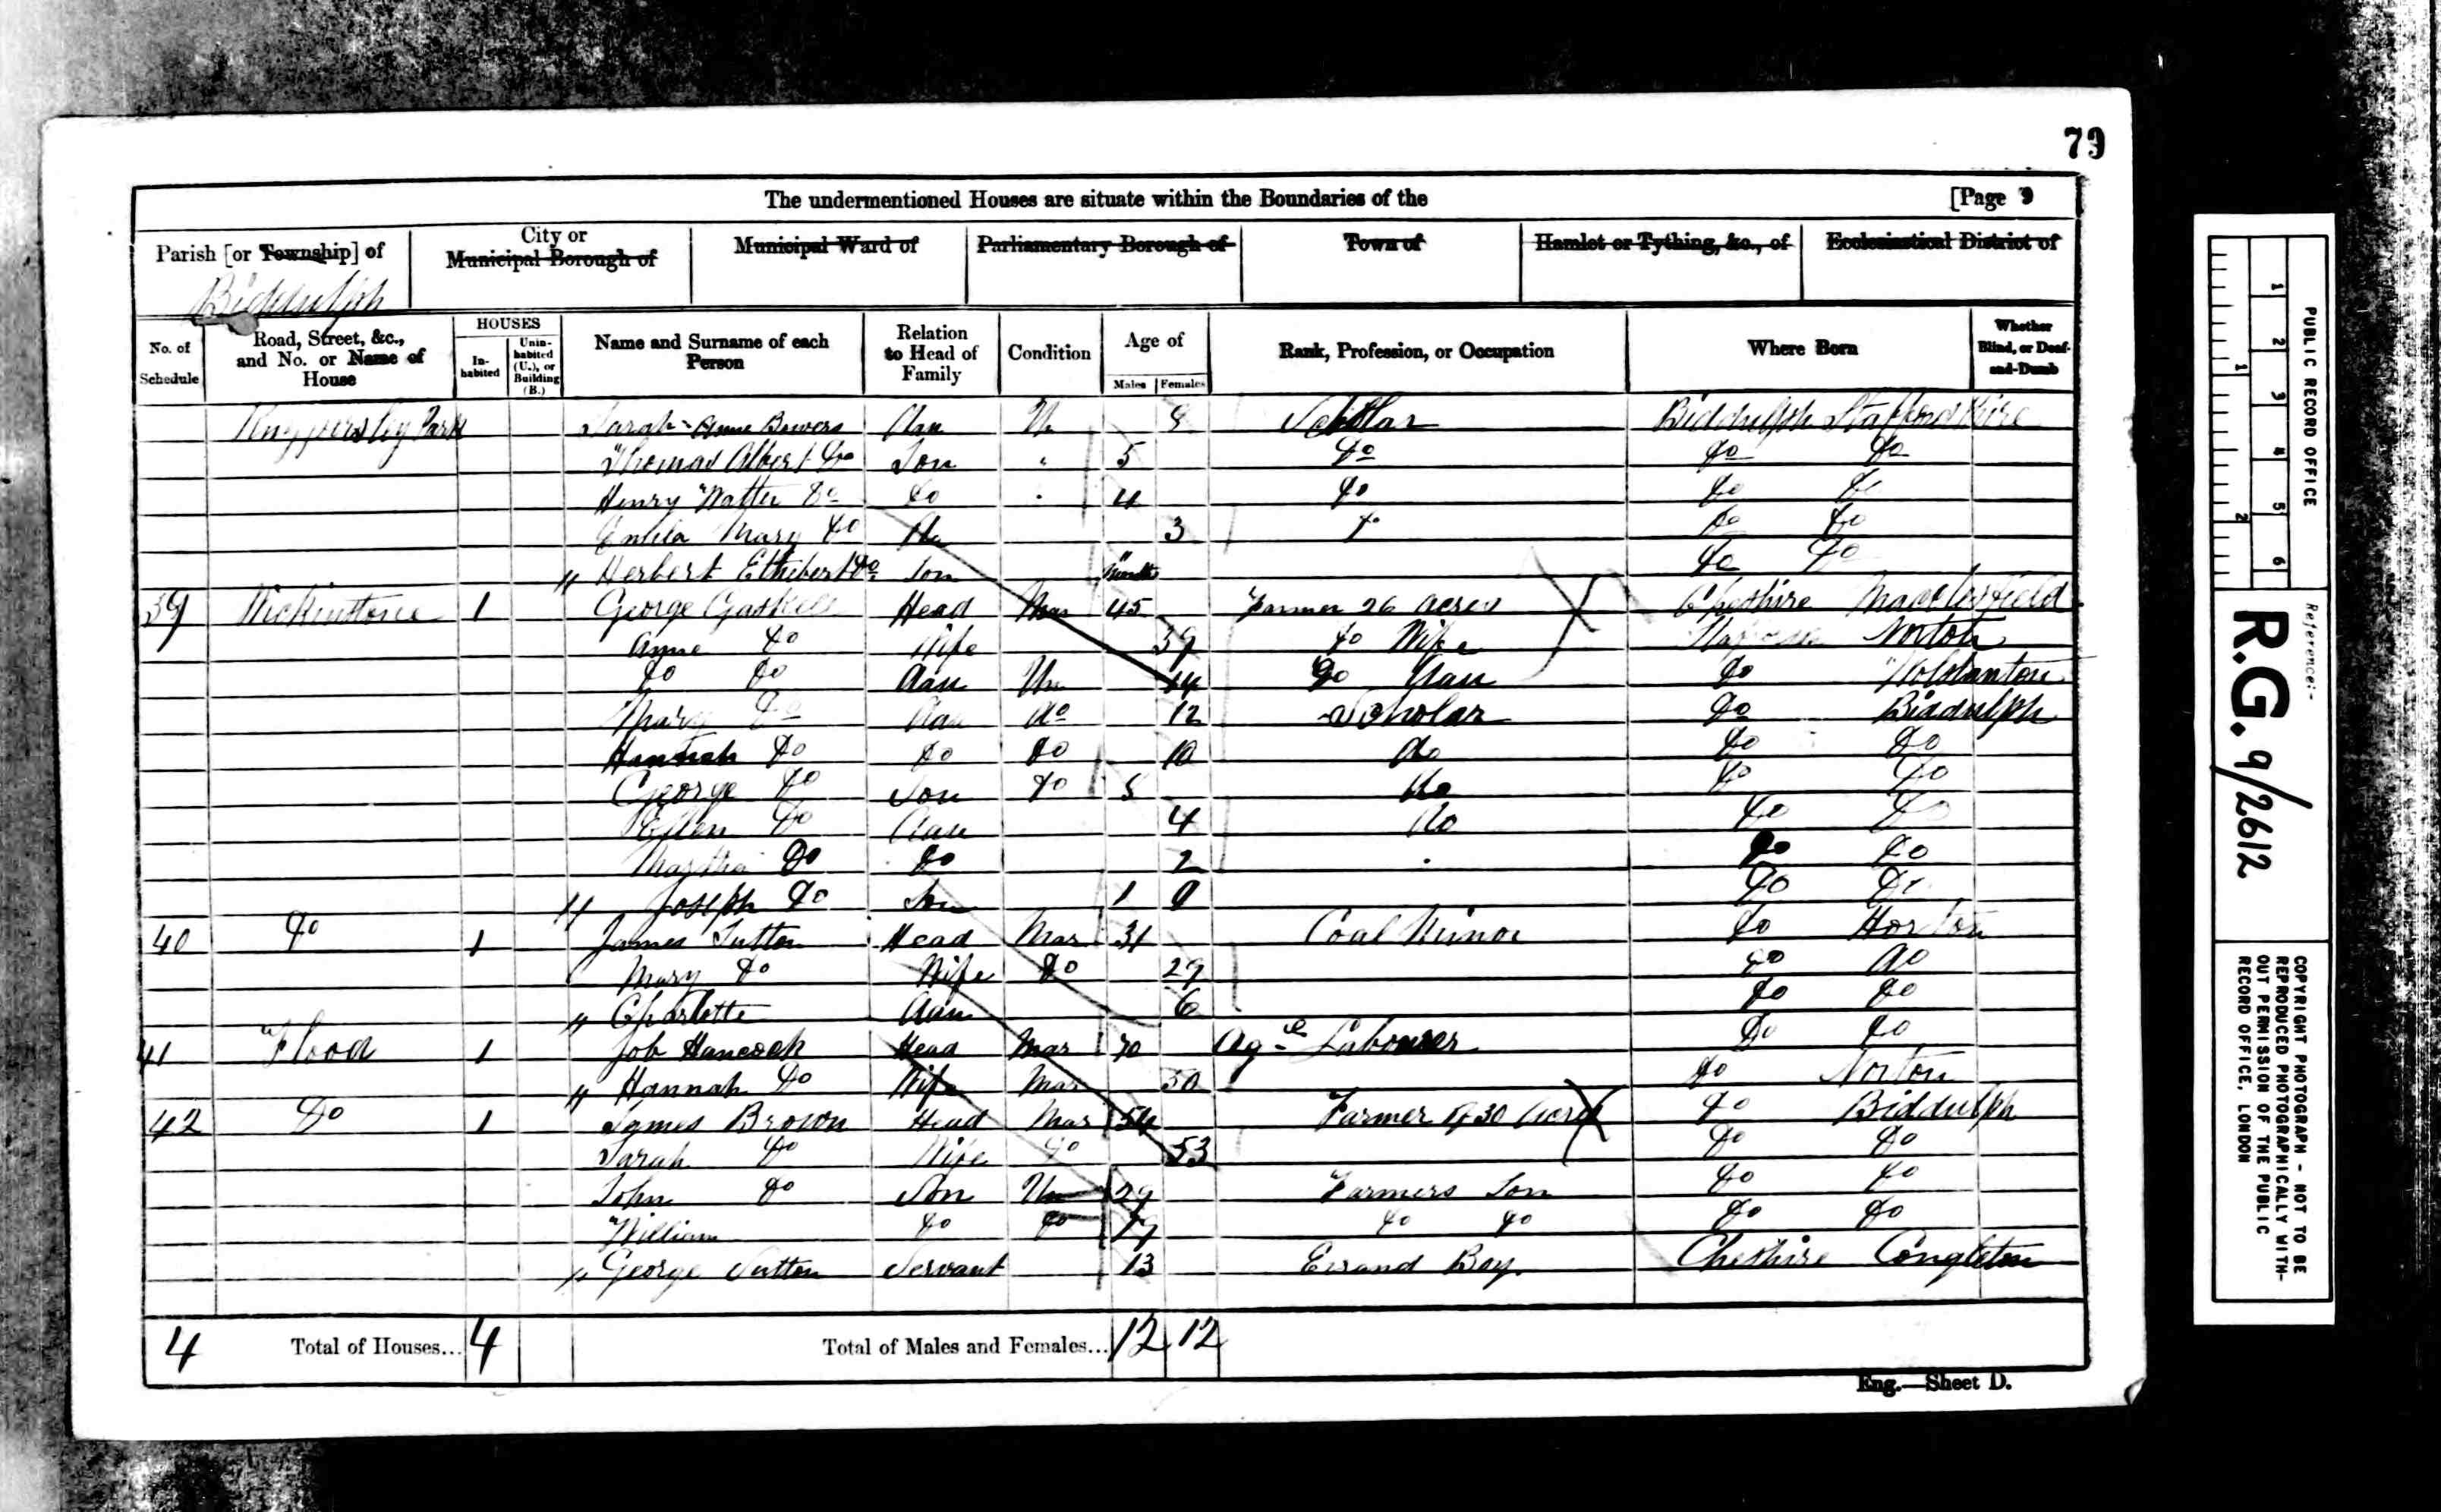 79
The undermentioned Houses are situate within the Boundaries of the [Page 9
Parish [or Township] of Biddulph
City or Municipal Borough of
Municipal Ward of
Parliamentary Borough of
Town of
Hamlet or Tything, &c., of
Ecclesiastical District of
No. of Schedule
Road, Street, &c., and No. or Name of House
HOUSES
In-habited
Unin-habited (U.), or Building (B.)
Name and Surname of each Person
Relation to Head of Family
Condition
Age of
Males Females
Rank, Profession, or Occupation
Where Born
Whether Blind, or Deaf-and-Dumb
Knypersley Park Sarah Anne Bowers Dau Un 8 Scholar Biddulph Staffordshire
Thomas Albert Do Son 5 Do Do Do
Henry Walter Do Do 4 Do Do Do
Mary Do Dau 3 Do Do
Herbert Do Son Do Do
39 1 George Gaskell Head Mar 45 Farmer 26 acres Cheshire Macclesfield
Anne Do Wife 39 Do Wife Norton
Do Do Dau Un 14 Do Dau Do Wolstanton
Mary Do Dau Do 12 Scholar Do Biddulph
Hannah Do Do Do 10 Do Do Do
George Do Son Do 8 Do Do Do
Ellen Do Dau 4 Do Do Do
Martha Do Do 2 Do Do
Joseph Do Son 1 Do Do
40 Do 1 James Sutton Head Mar 31 Coal Minor Do Horton
Mary Do Wife Do 29 Do Do
Charlotte Dau 6 Do Do
41 Flood 1 Job Hancock Head Mar 70 Ag Labourer Do Do
Hannah Do Wife Mar 50 Do Norton
42 Do 1 James Brown Head Mar 54 Farmer of 30 Acres Do Biddulph
Sarah Do Wife Do 53 Do Do
John Do Son Un 29 Farmers Son Do Do
William Do Do 19 Do Do Do Do
George Sutton Servant 13 Errand Boy Cheshire Congleton
4 Total of Houses... 4 Total of Males and Females... 12 12
Eng.—Sheet D.
1 2 3 4 5 6
1 2
PUBLIC RECORD OFFICE
Reference:-
R.G. 9/2612
COPYRIGHT PHOTOGRAPH - NOT TO BE
REPRODUCED PHOTOGRAPHICALLY WITH-
OUT PERMISSION OF THE PUBLIC
RECORD OFFICE, LONDON